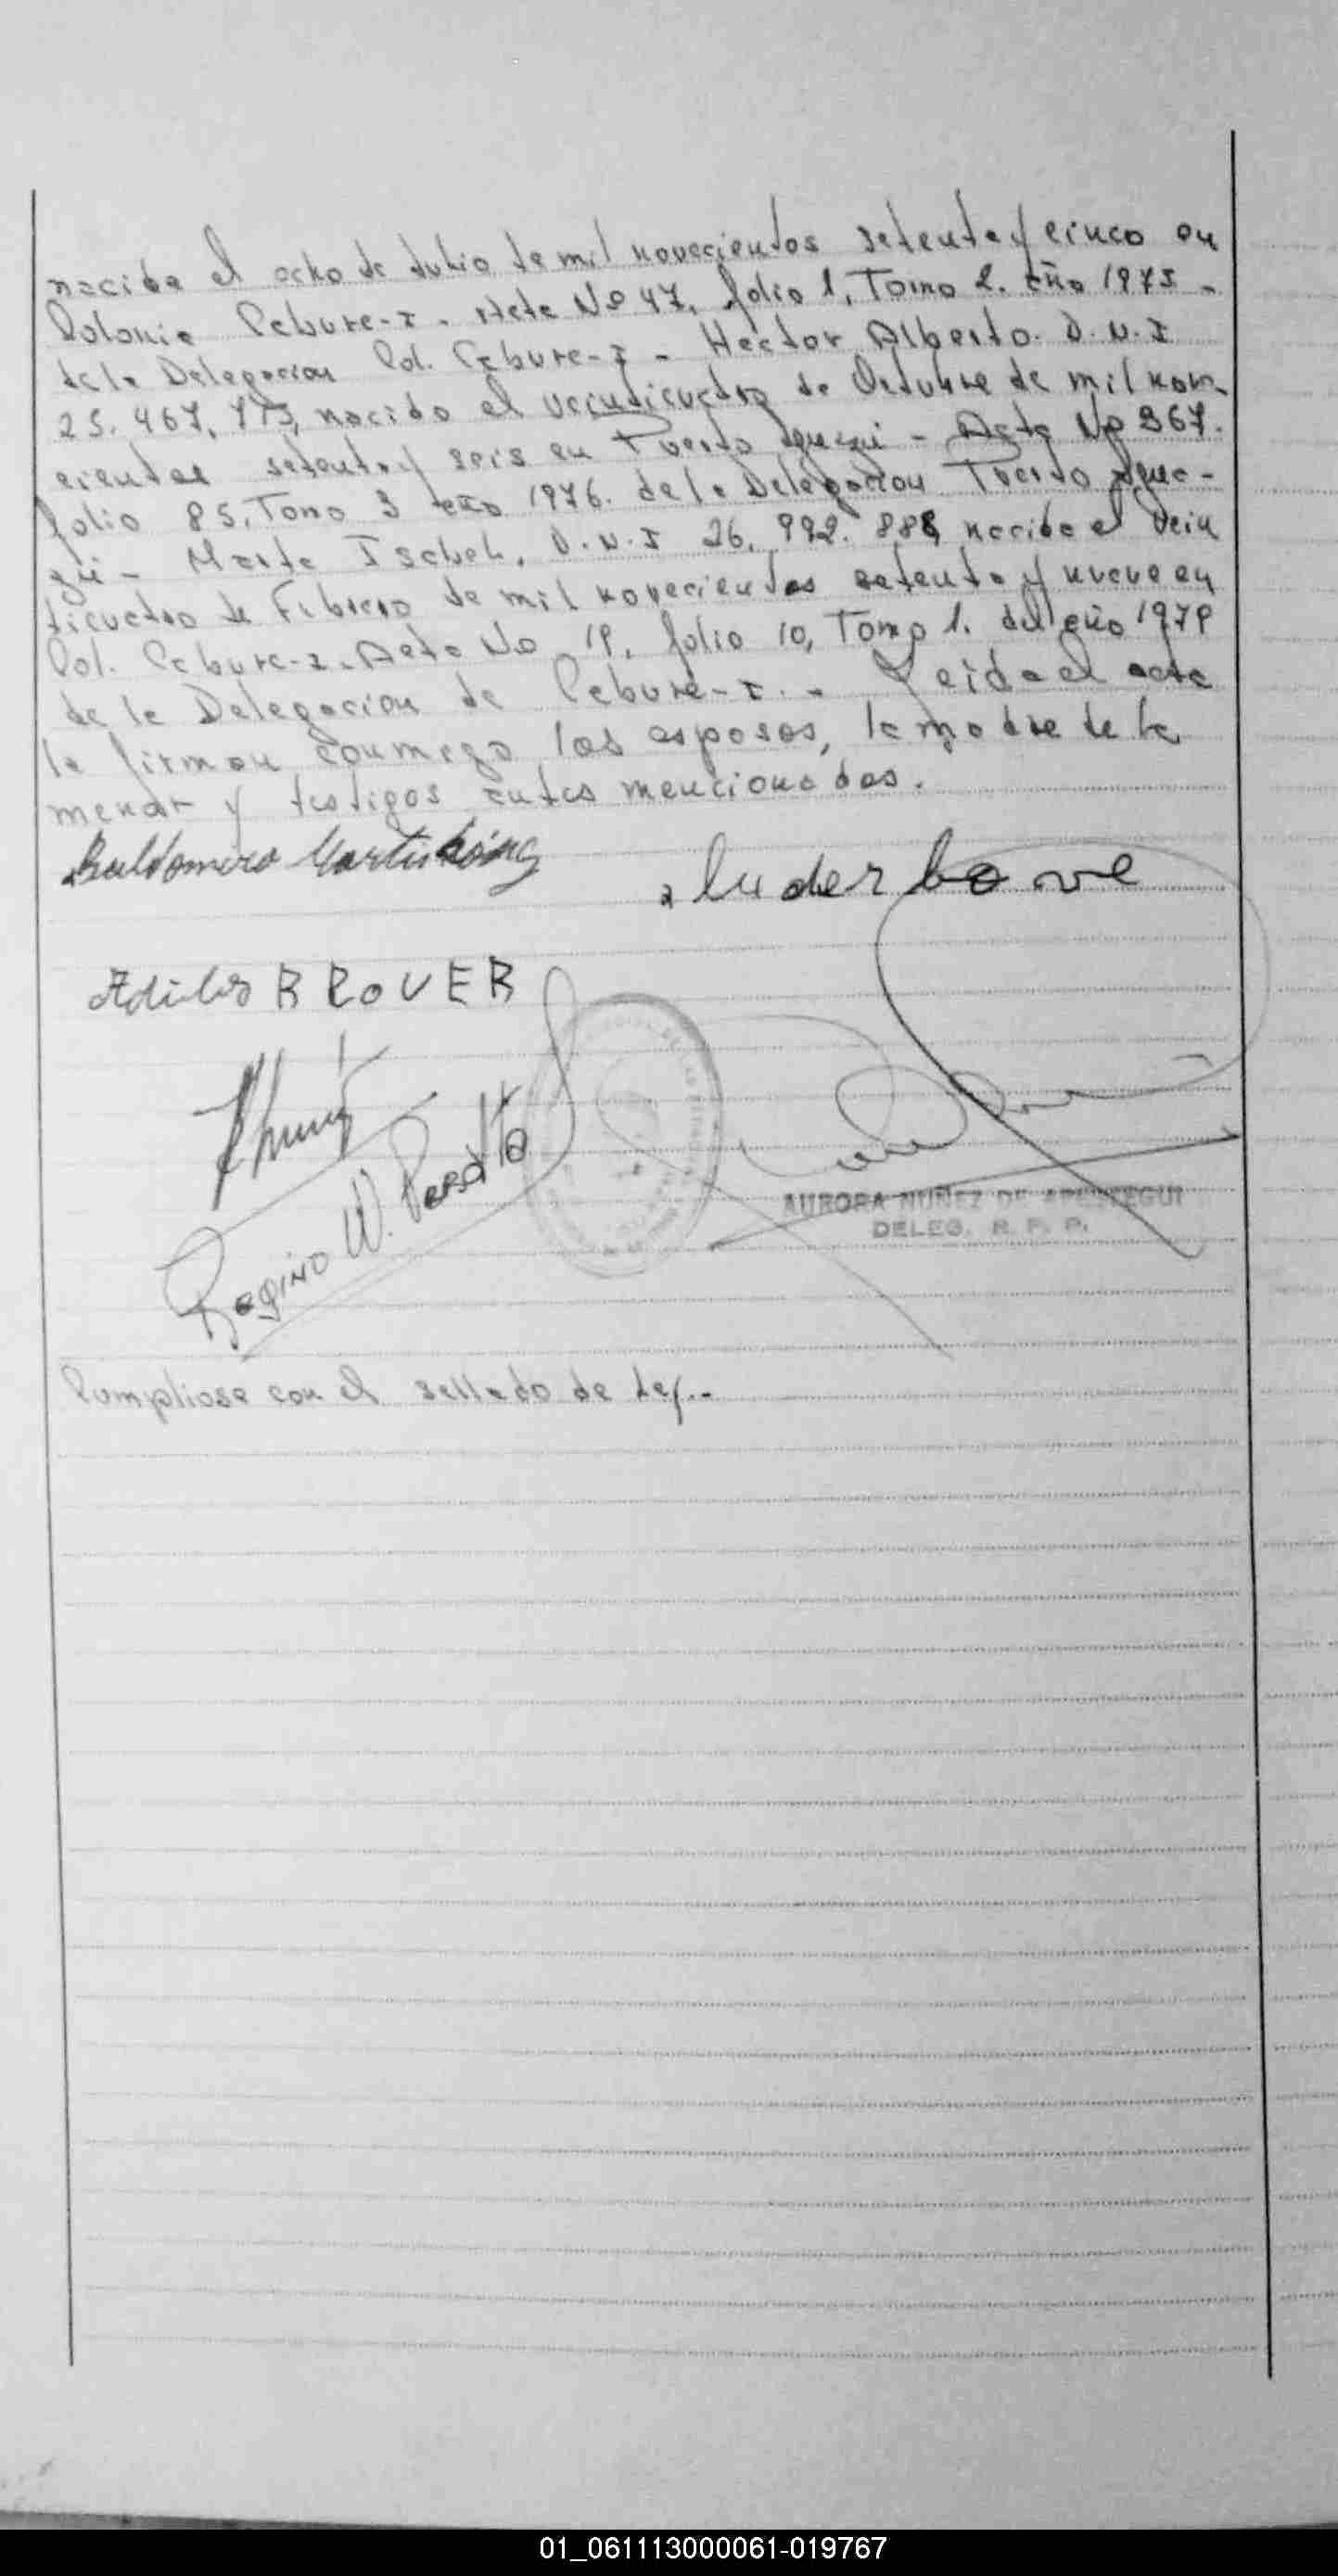 nacida el ocho de Julio de mil novecientos setenta y cinco en
Colonia Cabure-I. Acta No 47, folio 1, Tomo 2. año 1975 -
de la Delegacion Col. Cabure-I - Hector Alberto. D.N.I
25.467.773, nacido el veinticuatro de Octubre de mil nove
cientos setenta y seis en Puerto Iguazú - Acta No 367.
folio 85, Tomo 3 año 1976. de la Delegacion Puerto Igua-
zú - Marta Isabel, D.N.I 26.992.888, nacida el vein
ticuatro de Febrero de mil novecientos setenta y nueve en
Col. Cabure-I. Acta No 19, folio 10, Tomo 1. del año 1979
de la Delegacion de Cabure-I. - Leida el acta
la firman conmigo los esposos, la madre de la
menor y testigos antes mencionados.
Baldomero
BROVER
Regino W. Peralta
AURORA NUÑEZ DE
DELEG. R. P. P.
Cumpliose con el sellado de Ley.-
01_061113000061-019767